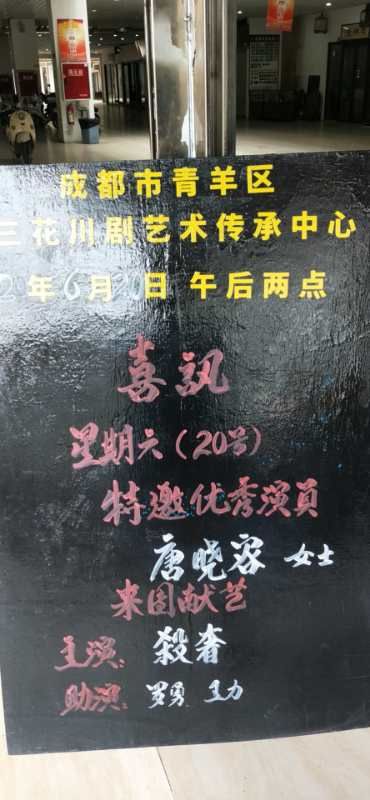 成都市青羊区
三花川剧艺术传承中心
年6月20日 午后两点
喜訊
星期六(20号)
特邀优秀演員
唐晓容 女士
来团献艺
主演: 殺奢
助演: 罗勇 王力